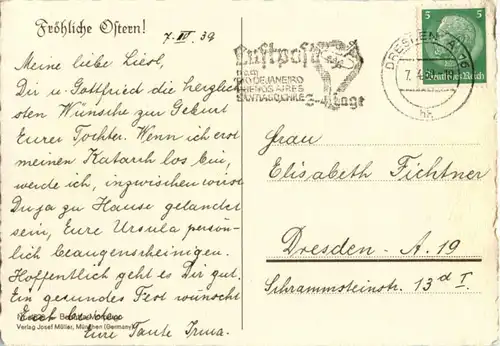 Fröhliche Ostern!
7.IV.39
Meine liebe Liesl,
Dir u. Gottfried die herzlich
sten Wünsche zur Geburt
Eurer Tochter. Wenn ich erst
meinen Katarrh los bin,
werde ich, inzwischen wirst
Du ja zu Hause gelandet
sein, Eure Ursula persön-
lich beaugenscheinigen.
Hoffentlich geht es Dir gut.
Ein gesundes Fest wünscht
Euch beiden
Eure Tante Irma.
Verlag Josef Müller, München (Germany)
Luftpost
nach
RIO DE JANEIRO
BUENOS AIRES
SANTIAGO CHILE
3-4 Tage
DRESDEN
7.4.
5 5
Deutsches Reich
Frau
Elisabeth Fichtner
Dresden - A. 19
Schrammsteinstr. 13 d I.